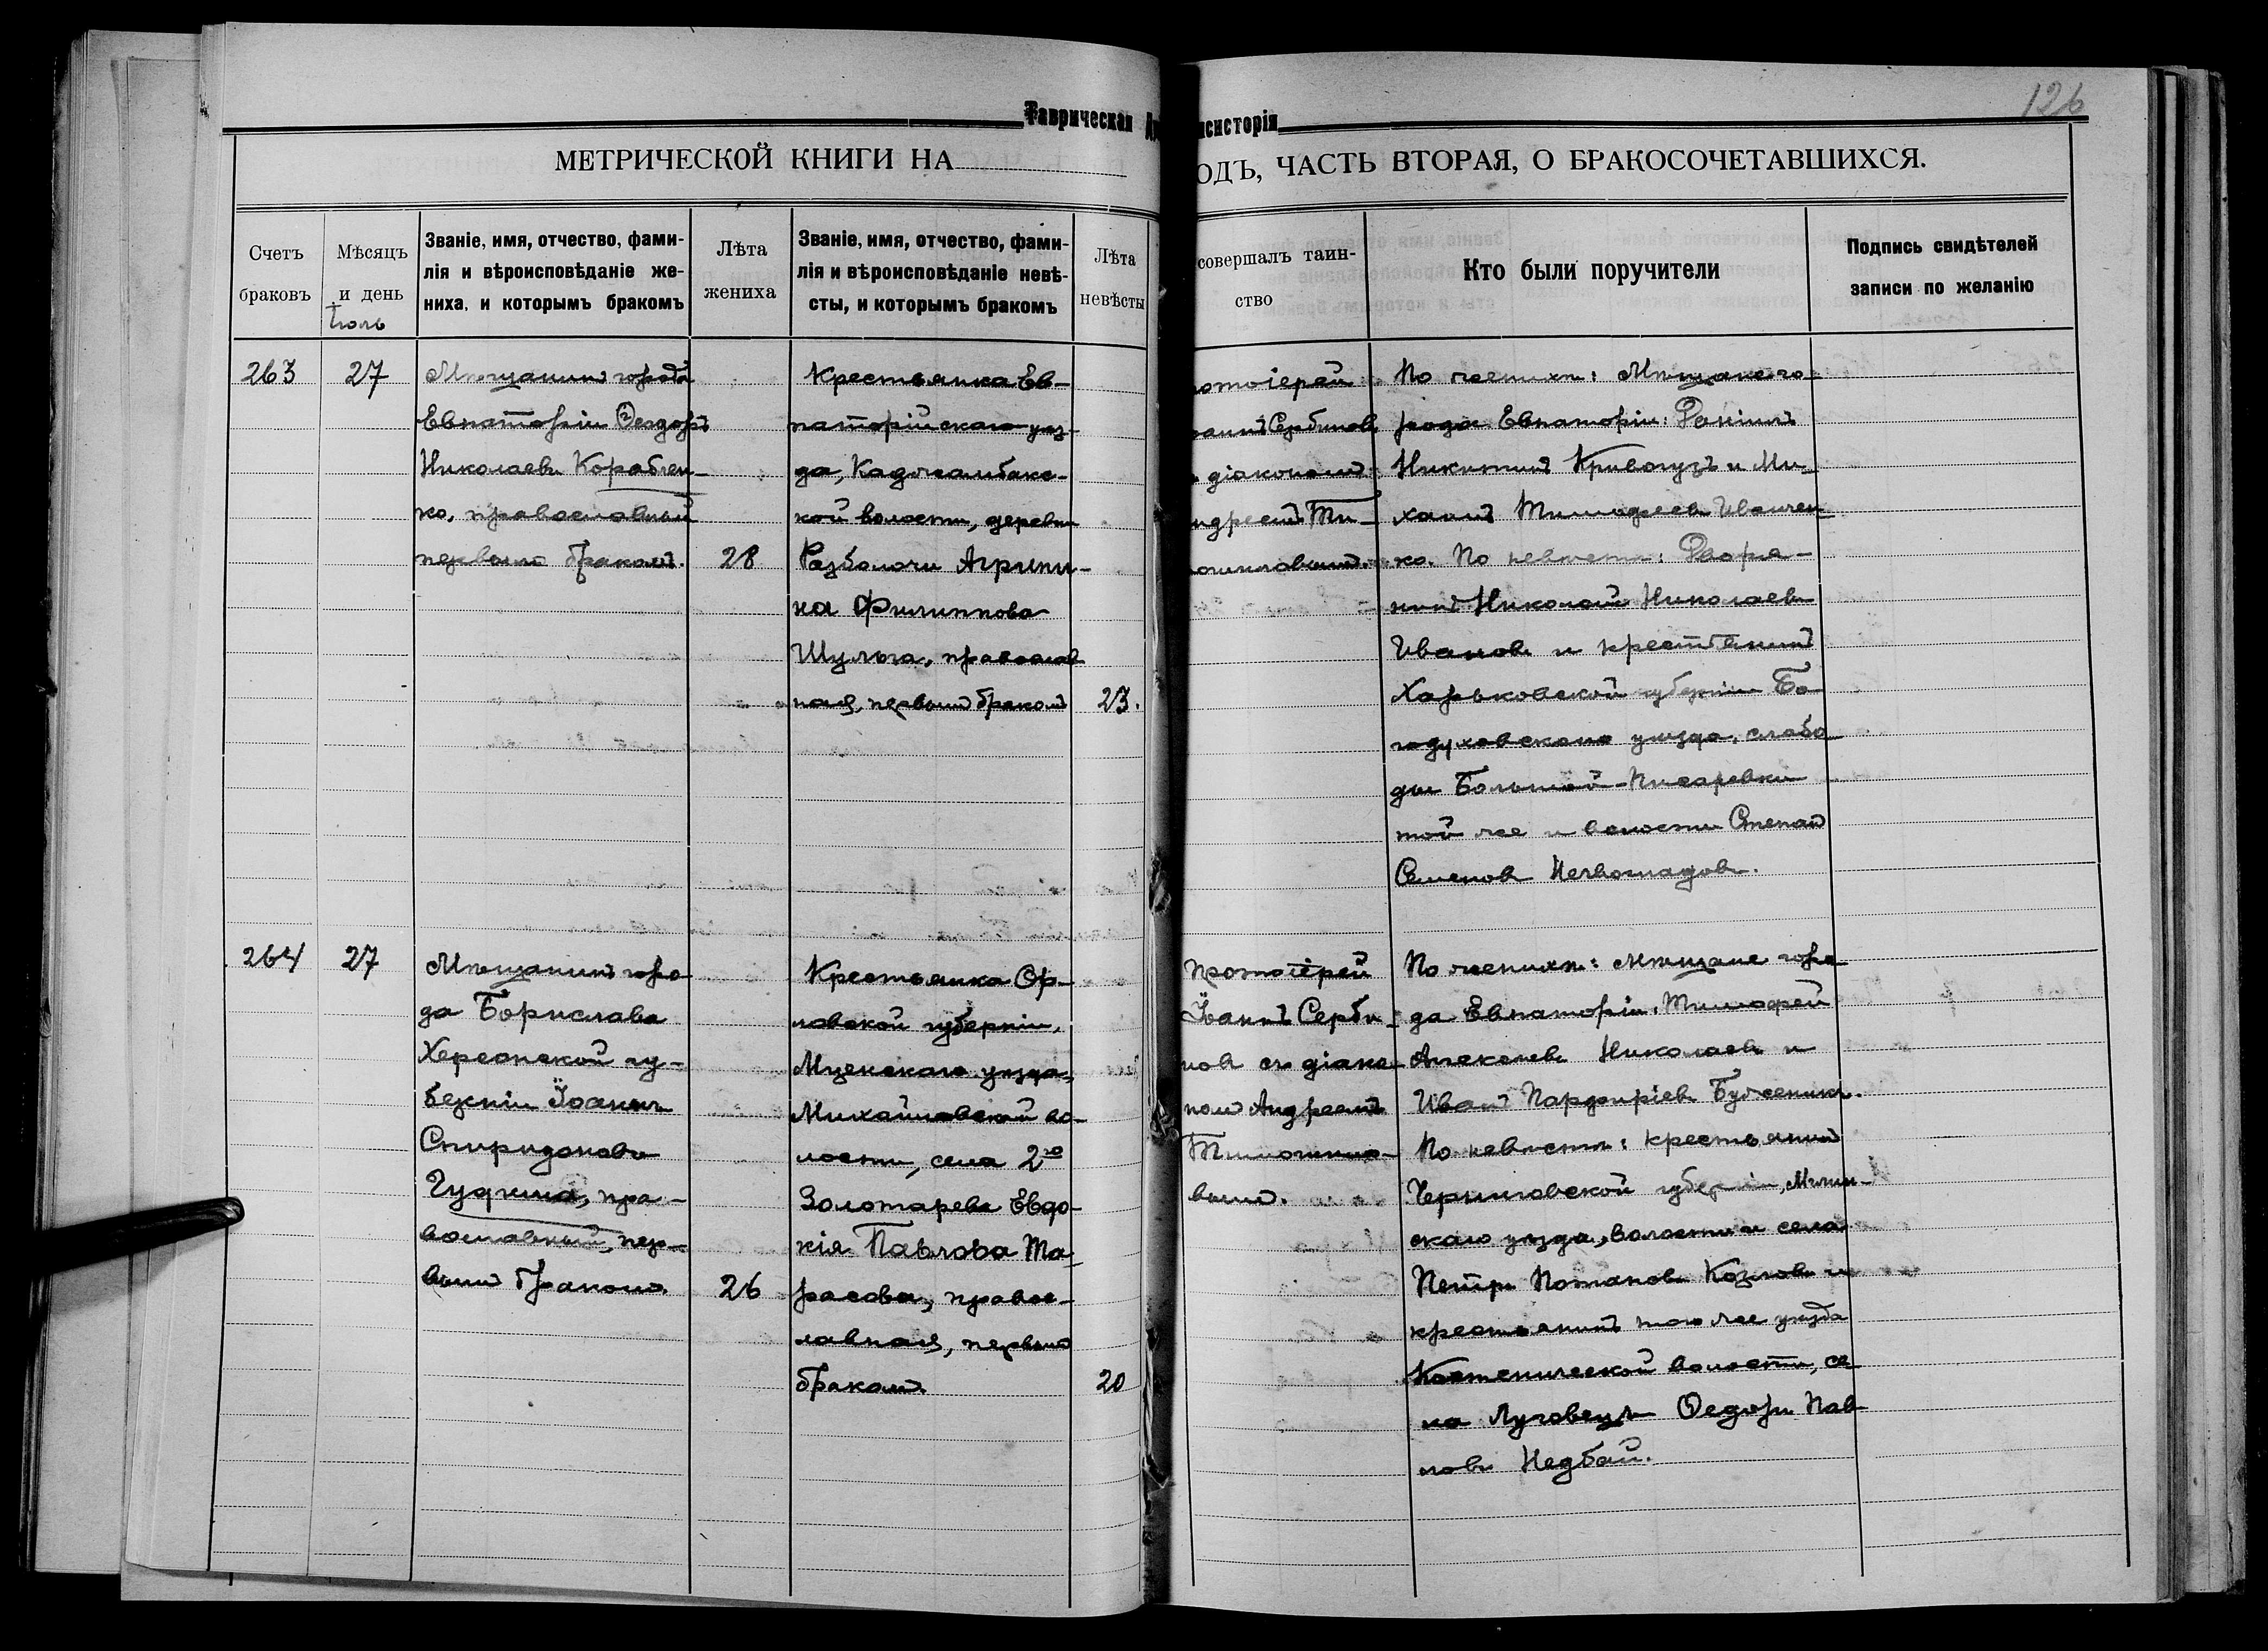 126
Таврическая
нсисторія
МЕТРИЧЕСКОЙ КНИГИ НА
ОДЪ, ЧАСТЬ ВТОРАЯ, О БРАКОСОЧЕТАВШИХСЯ.
Счетъ
браковъ
Мѣсяцъ
и день
Званіе, имя, отчество, фами-
лія и вѣроисповѣданіе же-
ниха, и которымъ бракомъ
Лѣта
жениха
Званіе, имя, отчество, фами-
лія и вѣроисповѣданіе невѣ-
сты, и которымъ бракомъ
Лѣта
невѣсты
совершалъ таин-
ство
Кто были поручители
Подпись свидѣтелей
записи по желанію
Іюль
263
27
Мѣщанинъ города
Евпаторіи Ѳеодоръ
Николаевъ Корабчен-
ко, православный
первымъ бракомъ.
28
Крестьянка Ев-
паторійскаго уѣз-
да, Кадыкаибакс-
кой волости, деревни
Агрипи-
на Филиппова
Шульга, православ
ная, первымъ бракомъ
23.
отоіерей
Сербиновъ
діакономъ
ндреемъ Ти-
По женихѣ: Мѣщане го-
рода Евпаторіи:
Никитинъ Кривогузъ и Ми-
хаилъ Тимофеевъ Иванчен-
ко. По невѣстѣ: Дворя-
нинъ Николай Николаевъ
Ивановъ и крестьянинъ
Харьковской губерніи Бо-
годуховскаго уѣзда, слобо-
ды Большой-Писаревки
той же и волости Степанъ
Семеновъ
264
27
Мѣщанинъ горо-
да Борислава
Херсонской гу-
берніи Іоаннъ
Спиридоновъ
Гудзина, пра-
вославный, пер-
вымъ бракомъ.
26
Крестьянка Ор-
ловской губерніи,
Мценскаго уѣзда,
Михайловской во-
лости, села 2го
Золотарева Евдо-
кія Павлова Та-
расова, правос-
лавная, первымъ
бракомъ.
20
Протоіерей
Іоаннъ Серби-
новъ съ діако-
номъ Андреемъ
Тимошино-
вымъ.
По женихѣ: Мѣщане горо-
да Евпаторіи: Тимофей
Алексеевъ Николаевъ и
Иванъ Парфиріевъ
По невѣстѣ: крестьянинъ
Черниговской губерніи, Мглин-
скаго уѣзда, волости и села
Петръ Потаповъ Козловъ и
крестьянинъ того же уѣзда
Костеничской волости, се-
ла Луговецъ Ѳедоръ Пав-
ловъ Недбай.